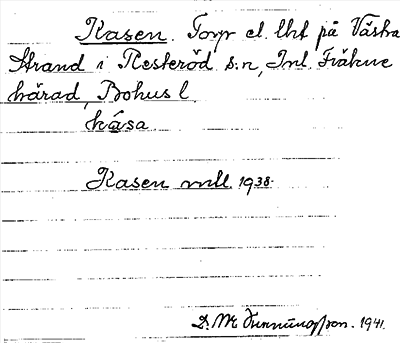 Kasen. Torp el. lht på Västra
Strand i Resteröd s:n, Inl. Fräkne
härad, Bohus l.
kåsa.
Kasen mll. 1938.
D. M. 1941.